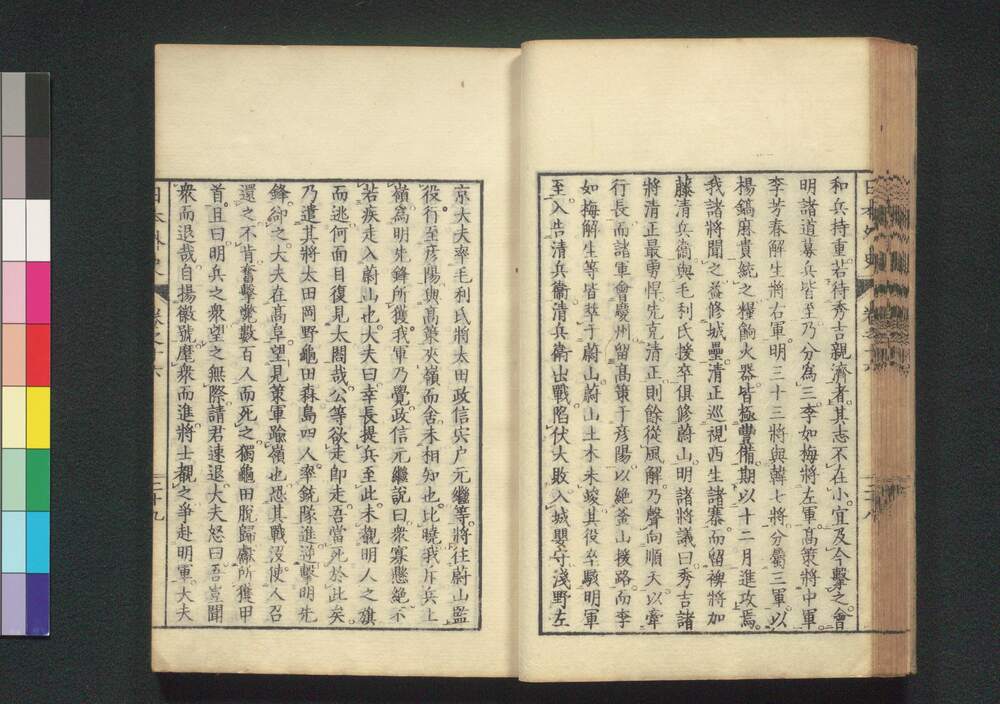 和兵持重若待秀吉親濟者其志不在小宜及今擊之會
明諸道募兵皆至乃分為三李如梅將左軍高策將中軍
李芳春解生將右軍明三十三將與韓七將分屬三軍以
楊鎬麻貴統之糧餉火器皆極豐備期以十二月進攻焉
我諸將聞之益修城壘清正巡視西生諸寨而留裨將加
藤清兵衞與毛利氏援卒俱修蔚山明諸將議曰秀吉諸
將清正最勇悍先克清正則餘從風解乃聲向順天以牽
行長而諸軍會慶州留高策于彦陽以絕釜山援路而李
如梅解生等皆萃于蔚山蔚山土木未竣其役卒駭明軍
至入告清兵衞清兵衞出戰陷伏大敗入城嬰守淺野左
京大夫率毛利氏將太田政信宍户元繼等將往蔚山監
役行至彦陽與高策夾嶺而舍未相知也比曉我斥兵上
嶺爲明先鋒所獲我軍乃覺政信元繼說曰衆寡懸絕不
若疾走入蔚山也大夫曰幸長提兵至此未觀明人之旗
而逃何面目復見太閤哉公等欲走即走吾當死於此矣
乃遣其將太田岡野龜田森島四人率銃隊進逆擊明先
鋒卻之大夫在高阜望見策軍踰嶺也恐其戰沒使人召
還之不肯奮擊斃數百人而死之獨龜田脫歸獻所獲甲
首且曰明兵之衆望之無際請君速退大夫怒曰吾豈聞
衆而退哉自揚徽號麾衆而進將士觀之爭赴明軍大夫
日本外史 卷之十六 二十九